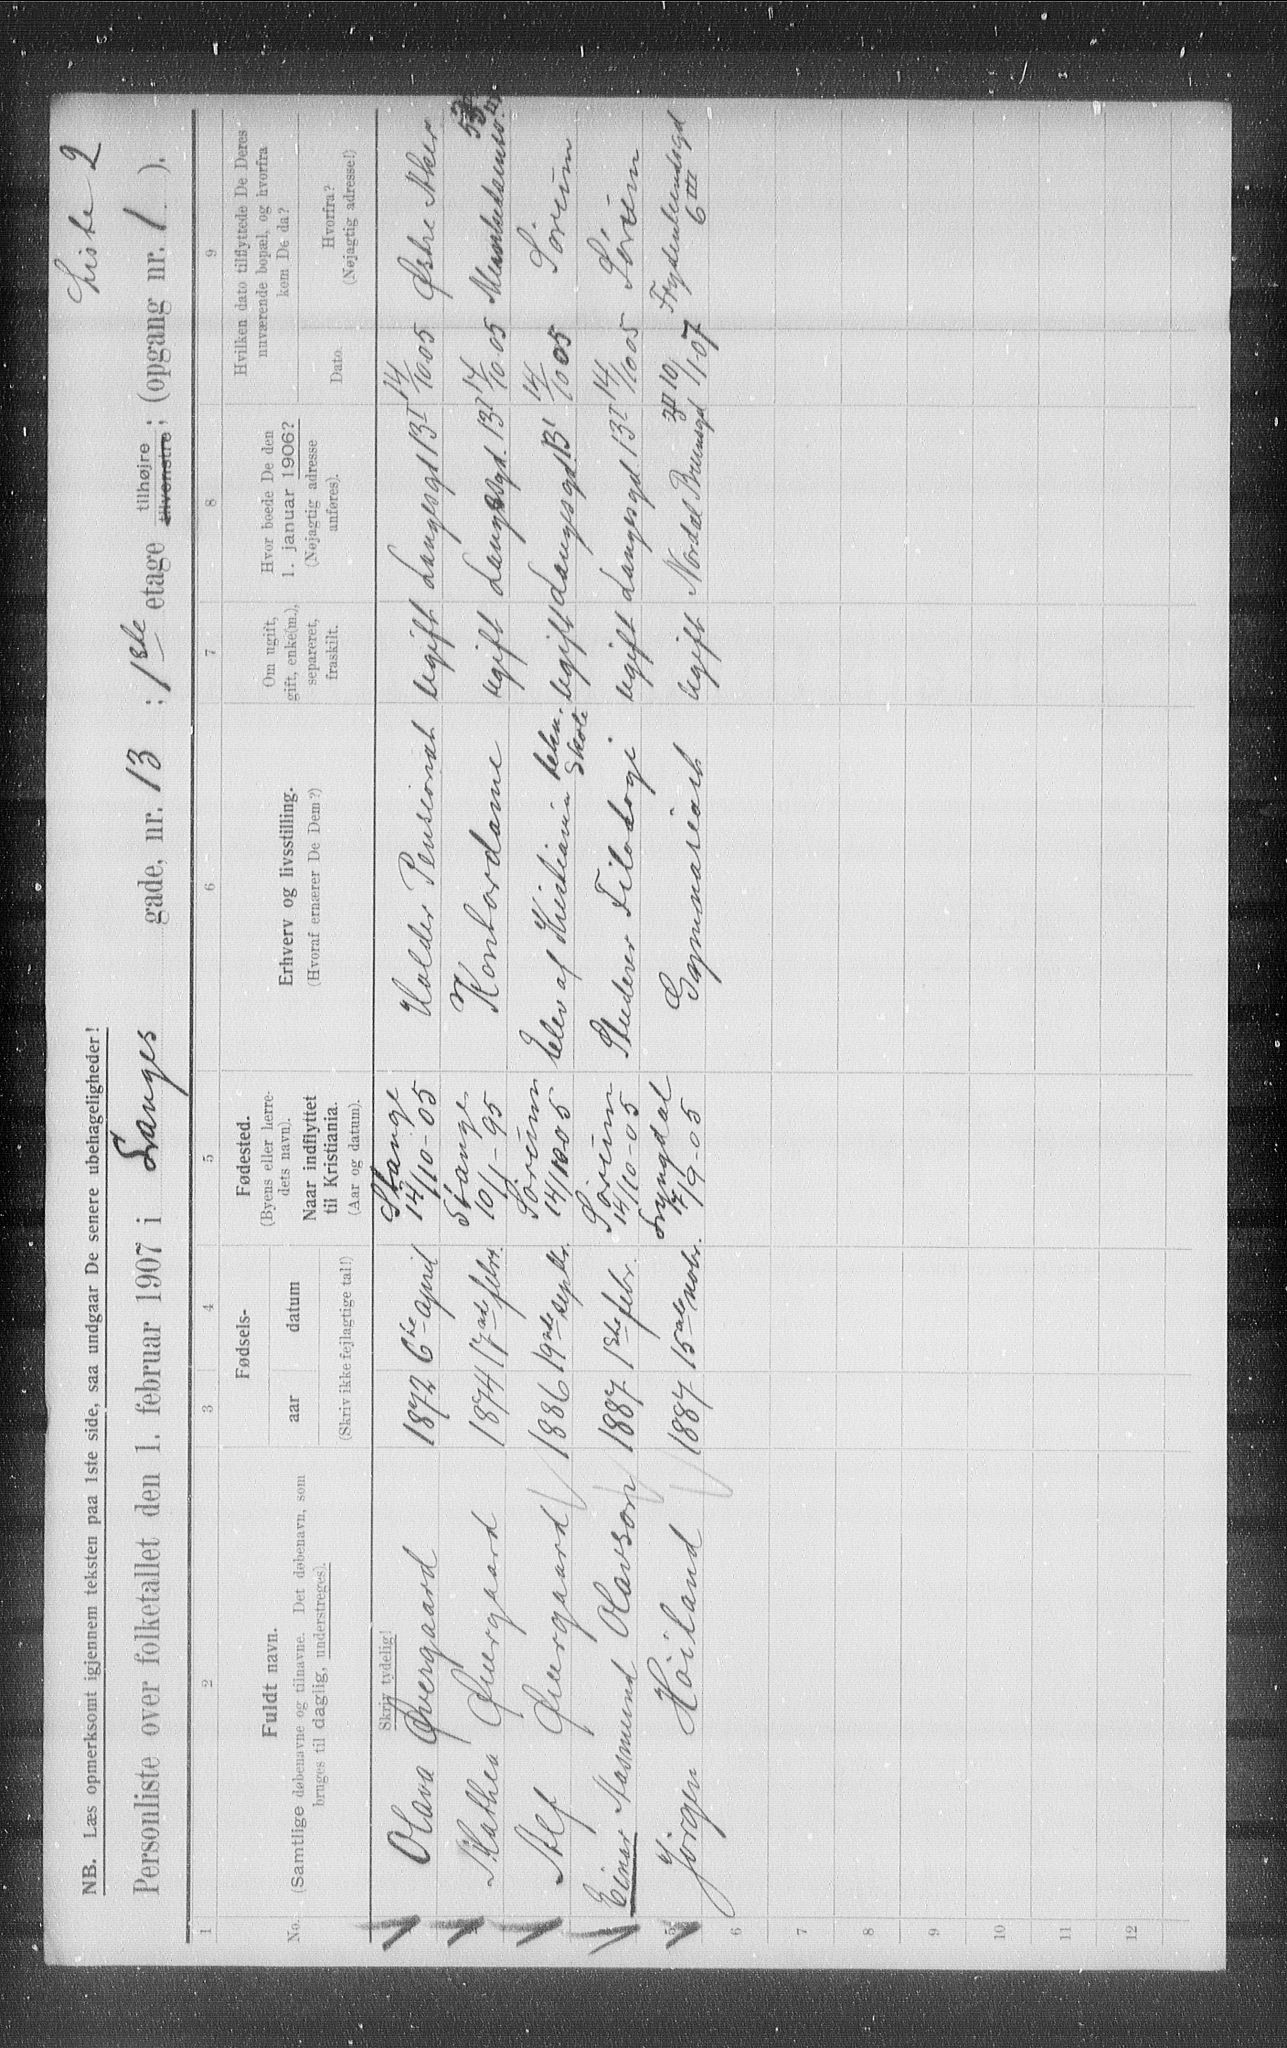 Liste 2
NB. Læs opmerksomt igjennem teksten paa 1ste side, saa undgaar De senere ubehageligheder!
Personliste over folketallet den 1. februar 1907 i Langes gade, nr. 13 ; 1ste etage tilhøjre tilvenstre; (opgang nr. 1 ).
1 2 3 4 5 6 7 8 9
No.
Fuldt navn.
(Samtlige døbenavne og tilnavne. Det døbenavn, som
bruges til daglig, understreges).
Fødsels-
aar datum
(Skriv ikke fejlagtige tal!)
Fødested.
(Byens eller herre-
dets navn).
Naar indflyttet
til Kristiania.
(Aar og datum).
Erhverv og livsstilling.
(Hvoraf ernærer De Dem?)
Om ugift,
gift, enke(m.),
separeret,
fraskilt.
Hvor boede De den
1. januar 1906?
(Nøjagtig adresse
anføres).
Hvilken dato tilflyttede De Deres
nuværende bopæl, og hvorfra
kom De da?
Dato.
Hvorfra?
(Nøjagtig adresse!)
Skriv tydelig!
Olava Øvergaard 1872 6te april Stange 14/10-05 Holder Pensionat ugift Langesgd 13I 14/10 05 Østre Aker
Mathea Øvergaard 1874 17de febr. Stange 10/1-95 Kontordame ugift Langesgd. 13I 14/10 05
Alf Øvergaard 1886 19de septbr. Sørum 14/10 05 Elev af Kristiania tekn. Skole ugift Langesgd. 13I 14/10 05 Sørum
Einar Aasmund Olavson 1887 1ste febr. Sørum 14/10-05 Studerer Filologi ugift Langesgd 13I 14/10 05 Sørum
5 Jörgen Höiland 1887 15de novbr. Lyngdal 17/9-05 Gymnasiast ugift Nordal Brunsgd 10/1-07 Frydenlundsgd 6III
6
7
8
9
10
11
12